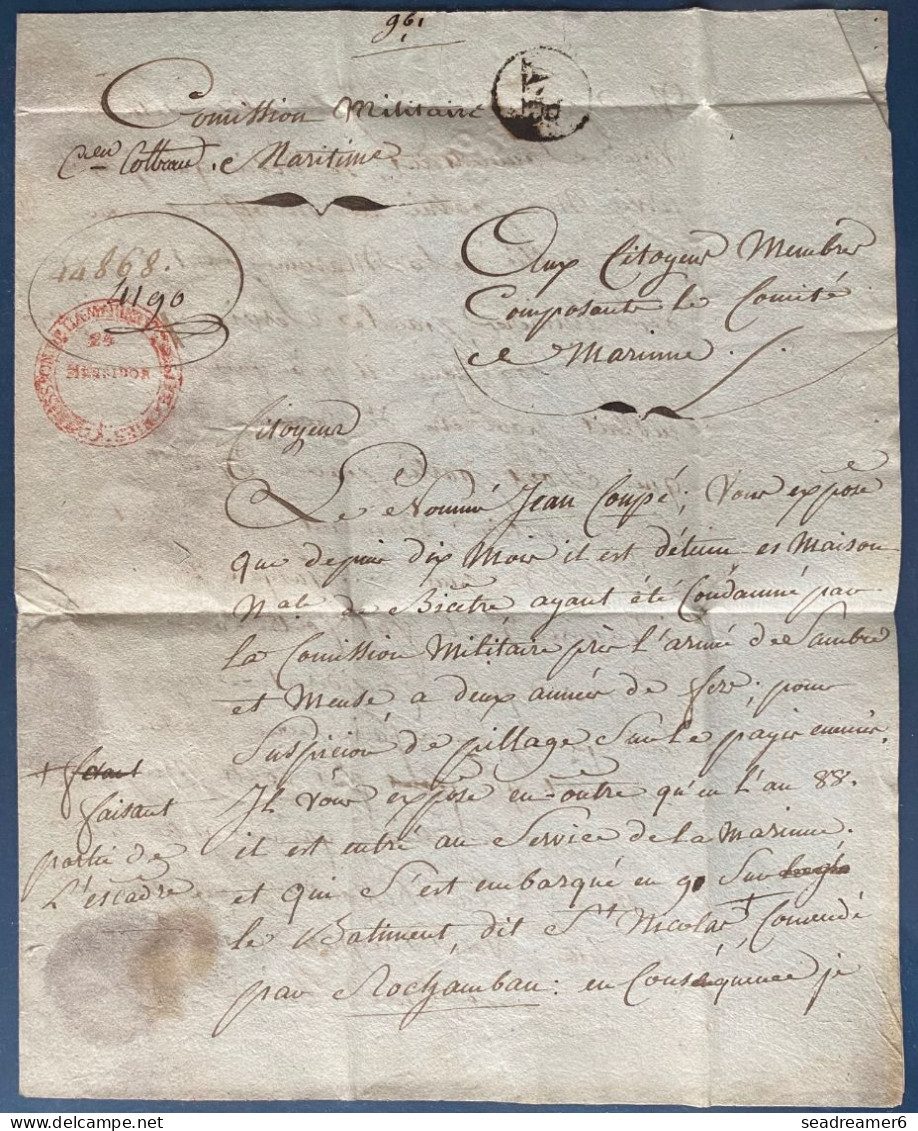 96
Comission Militaire
Cen Cottrau. e Maritime
14868.
4190
24
MESSIDOR
Aux Citoyens Membres
Composants le Comité
de Marinne.
Citoyens
Le Nommé Jean Coupé; Vous expose
que depuis dix Mois il est détenu es Maison
Nale. de Bicêtre ayant été Condamné par
la Comission Militaire près l'armé de Sambre
et Meuse a deux années de fers; pour
Suspicion de pillage Sur le payis ennemis.
Il vous expose en outre qu'en l'an 88.
il est entré au Service de la Marinne.
et qui S'est embarqué en 90 Sur
le Batiment, dit St. Nicolas + Comendé
par Rochambau: en Conséquence je
+
faisant
partie de
L'escadre
seadreamer6